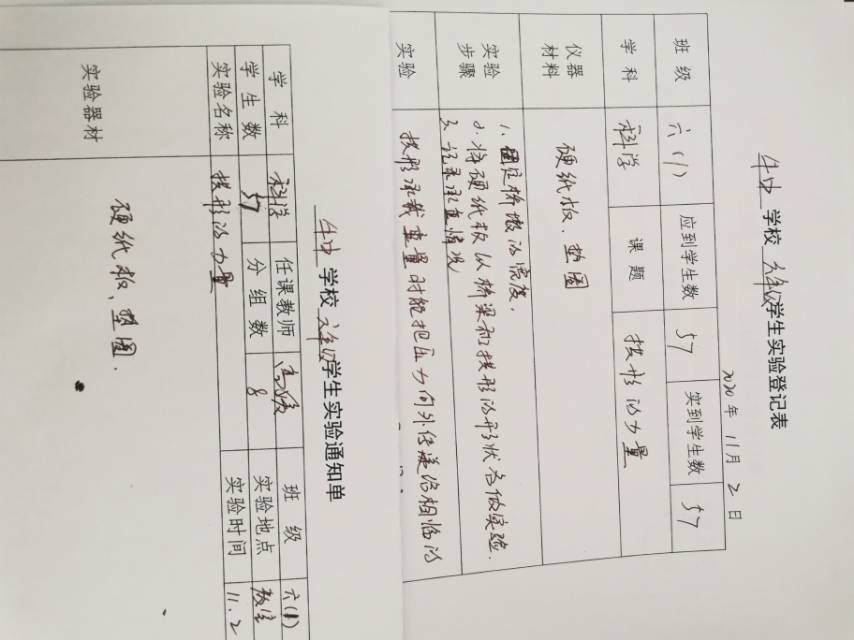 牛中 学校 六年级 学生实验登记表
2020年 11月 2日
班级 六(1) 应到学生数 57 实到学生数 57
学科 科学 课题 拱形的力量
仪器材料 硬纸板、垫圈
实验步骤
1. 固定桥墩的高度.
2. 将硬纸板以桥梁和拱形的形状各做实验.
3. 记录承重情况
实验 拱形承载重量时能把压力向外传递给相临的
牛中 学校 六年级 学生实验通知单
学科 科学 任课教师 班级 六(1)
学生数 57 分组数 8 实验地点 教室
实验名称 拱形的力量 实验时间 11.2
实验器材 硬纸板、垫圈.